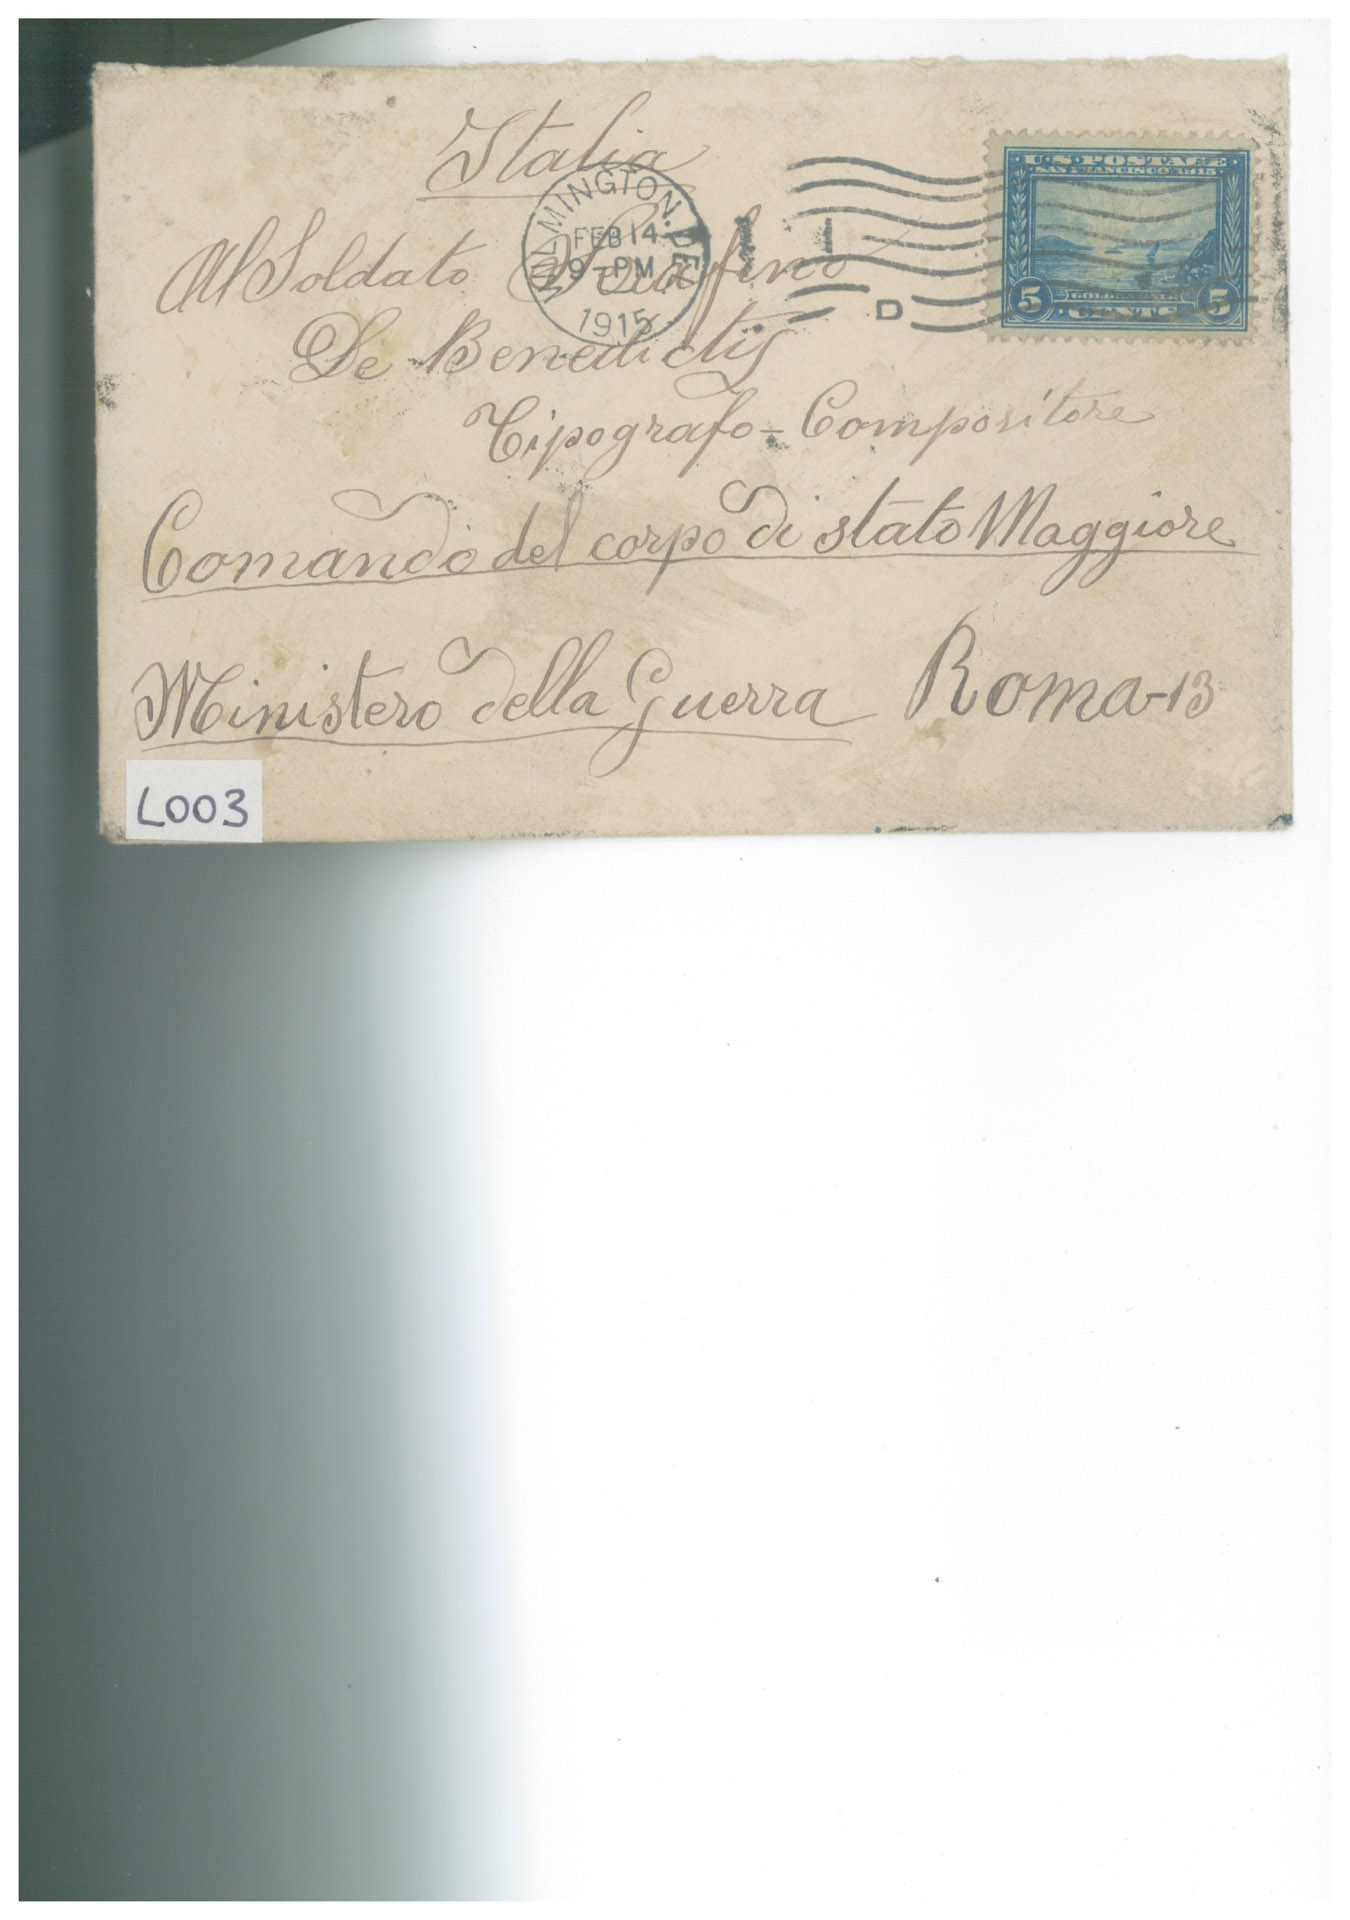 Italia
Al Soldato Serafino
De Benedictis
Tipografo-Compositore
Comando del corpo di stato Maggiore
Ministero della Guerra Roma-13
WILMINGTON. DEL.
FEB 14
9-PM
1915
D
U·S·POSTAGE
SAN FRANCISCO 1915
5 GOLDEN GATE 5
CENTS
L003